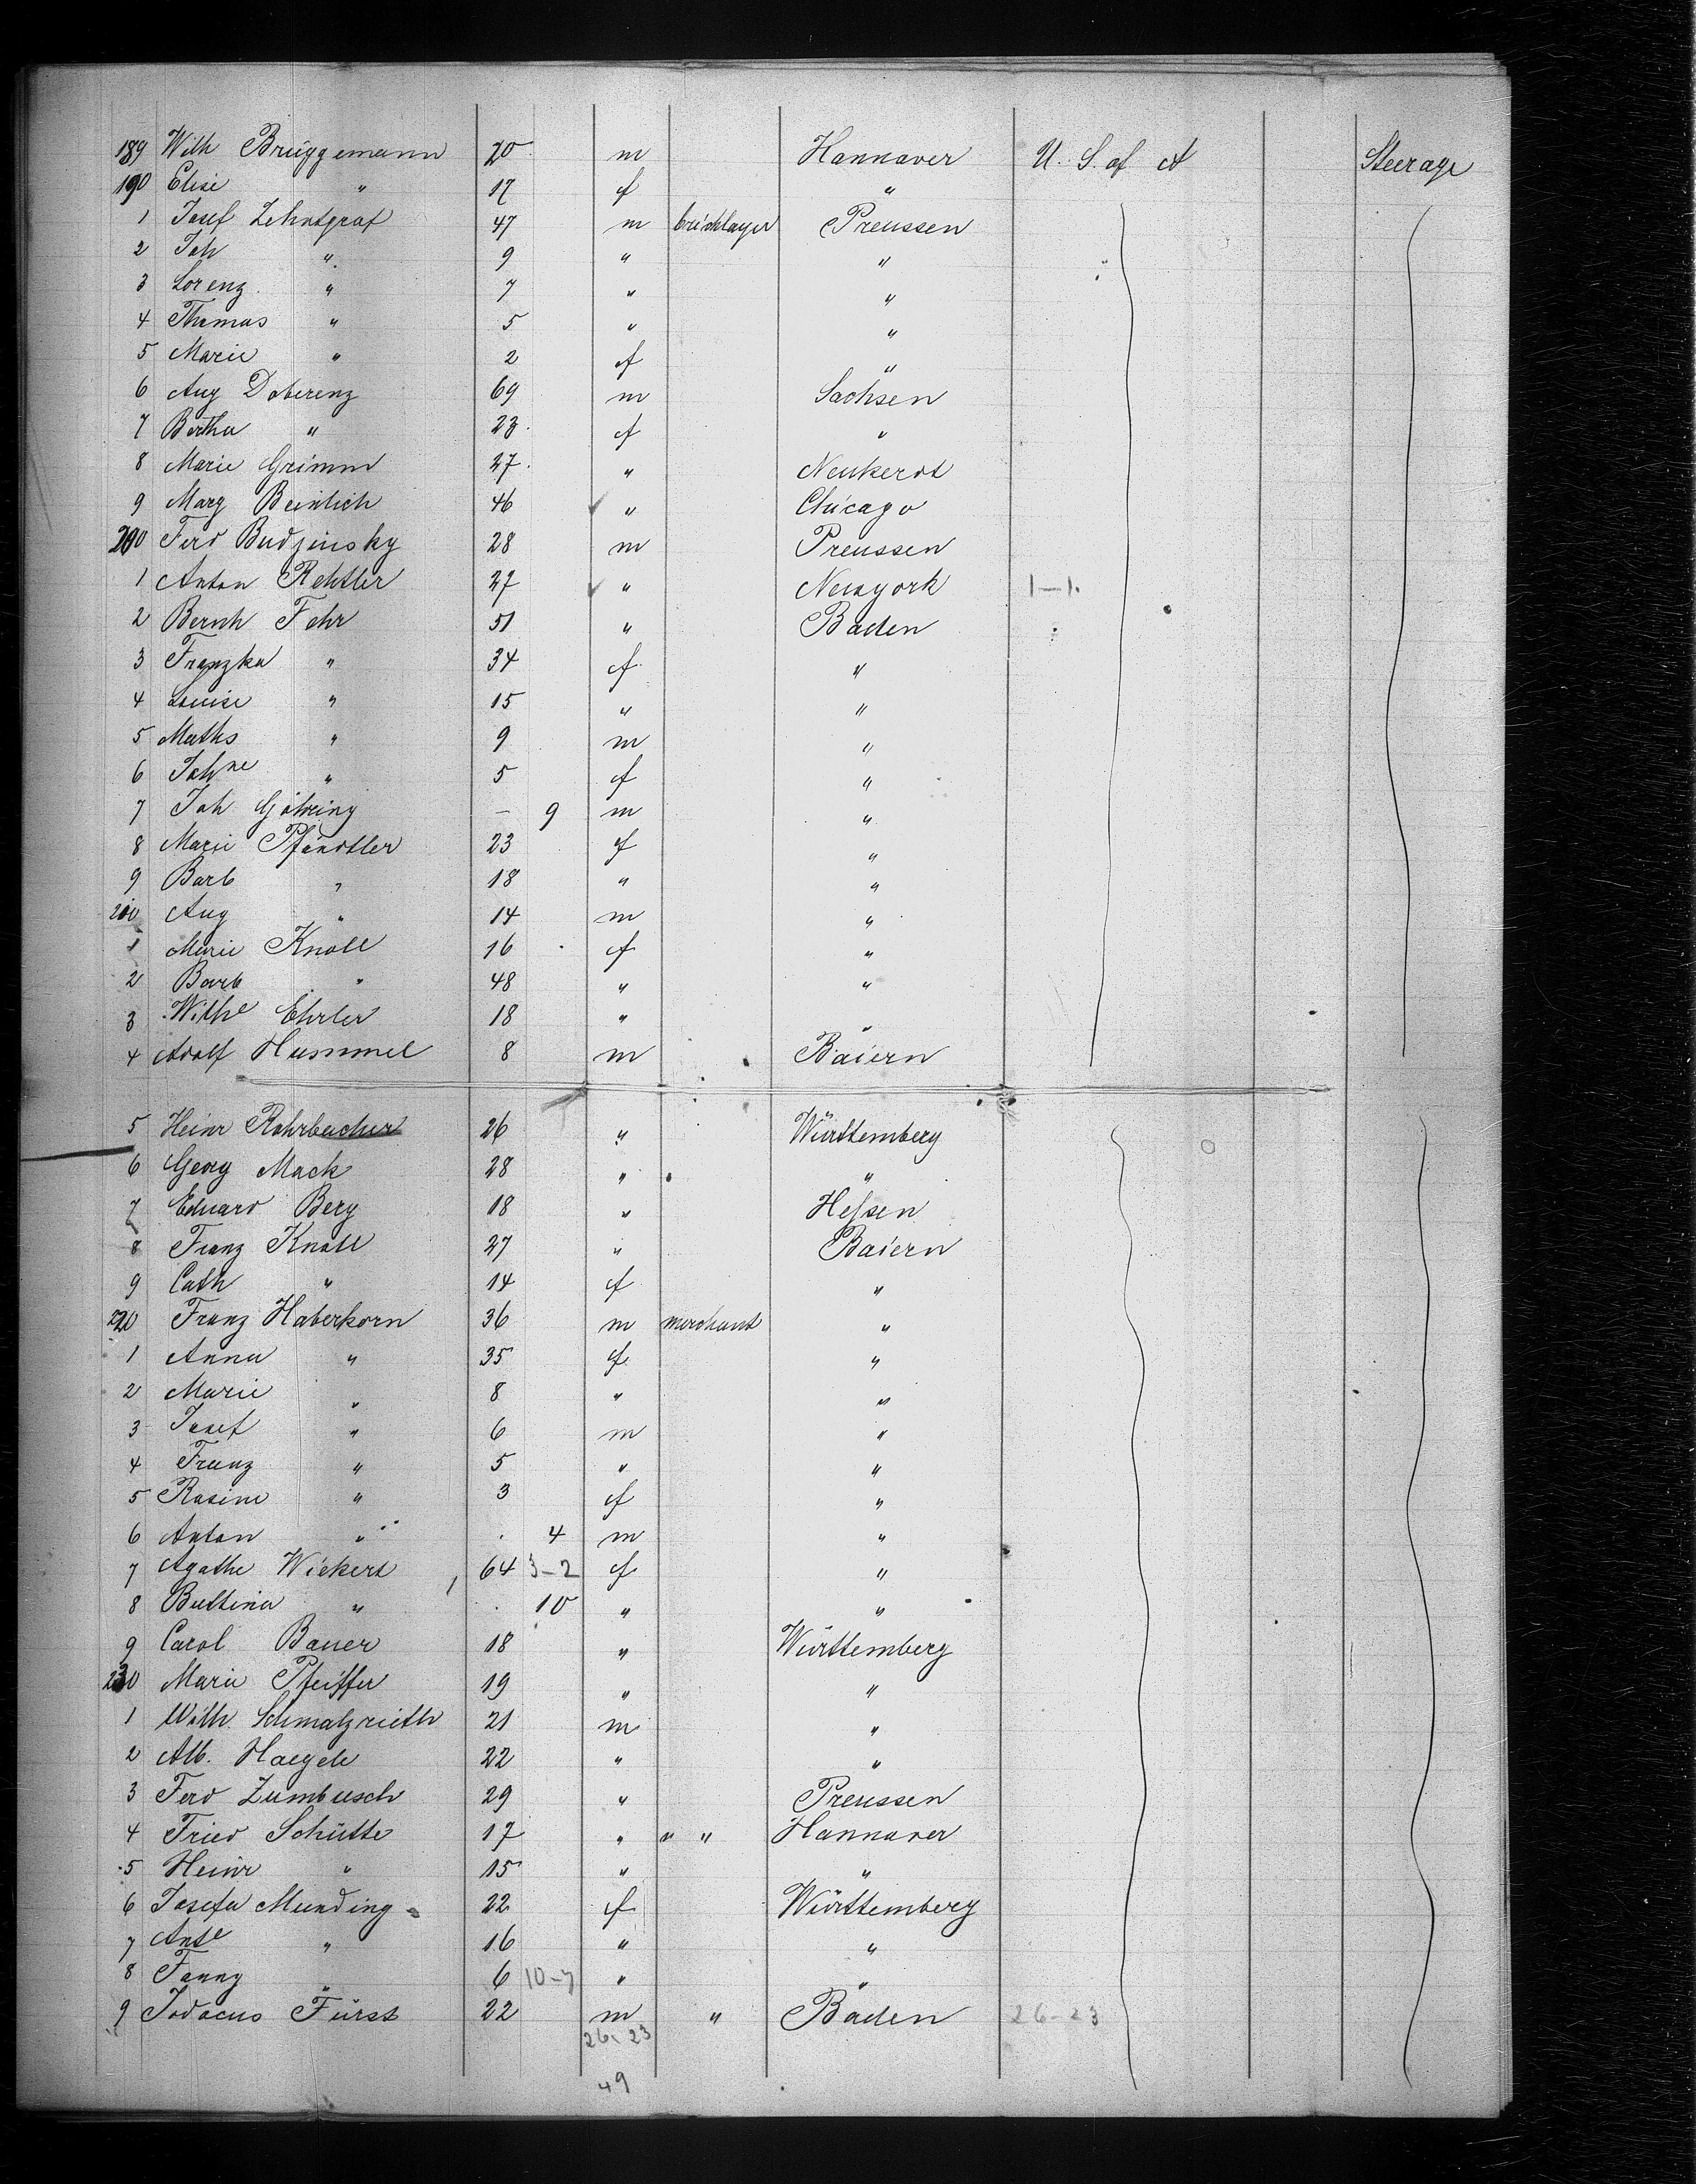 189 Wilh Brüggemann 20 m Hannover U. S. of A Steerage
190 Elise " 17 f "
1 Josef Zehntgraf 47 m bricklayer Preussen
2 Joh " 9 " "
3 Lorenz " 7 " "
4 Thomas " 5 " "
5 Marie " 2 f "
6 Aug Doberenz 69 m Sachsen
7 Bertha " 23 f "
8 Marie Grimm 27 "
9 Marg Beinlich 46 " Chicago
200 Ferd Budzinsky 28 m Preussen
1 Anton Rehtler 27 " Newyork 1-1
2 Bernh Fehr 51 " Baden
3 Franzka " 34 f "
4 Louise " 15 " "
5 Maths " 9 m "
6 Johne " 5 f "
7 Joh Göhring - 9 m "
8 Marie Pfändtler 23 f "
9 Barb " 18 " "
210 Aug " 14 m "
1 Marie Knoll 16 f "
2 Barb " 48 " "
3 Wilhe Ehrler 18 " "
4 Adolf Hummel 8 m Baiern
5 Heinr Rohrbacher 26 " Württemberg
6 Georg Mack 28 " "
7 Eduard Berg 18 " Hessen
8 Franz Knoll 27 " Baiern
9 Cath " 14 f "
220 Franz Haberkorn 36 m merchant "
1 Anna " 35 f "
2 Marie " 8 " "
3 Josef " 6 m "
4 Franz " 5 " "
5 Rosine " 3 f "
6 Anton " 4 m "
7 Agathe Wickert 64 3-2 f "
8 Bettina " 10 " "
9 Carol Bauer 18 " Württemberg
230 Marie Pfeiffer 19 " "
1 Wilh. Schmalzrieth 21 m "
2 Alb. Haegele 22 " "
3 Ferd Zumbusch 29 " Preussen
4 Fried Schütte 17 " " " Hannover
5 Heinr " 15 " "
6 Josefa Munding 22 f Württemberg
7 Ante " 16 " "
8 Fanny " 6 10-7 " "
9 Jodocus Fürst 22 m " Baden 26-23
26 23
49